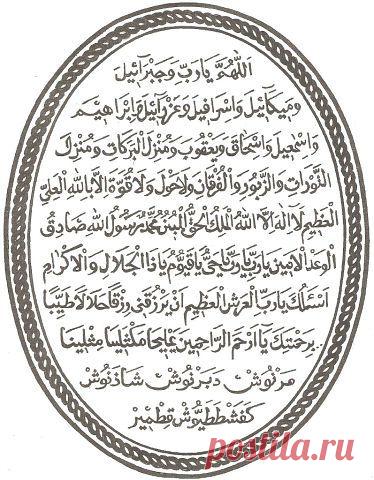 اللهم يارب وجبرائيل
وميكائيل واسرافيل وعزرائيل وابراهيم
واسمعيل واسحاق ويعقوب ومنزل البركات ومنزل
التورات والزبور والفرقان ولاحول ولا قوة الا بالله العلي
العظيم لا اله الا الله الملك الحق المبين محمد رسول الله صادق
الوعد الامين يارب يارب ياحي ياقيوم ياذا الجلال والاكرام
اسئلك يارب العرش العظيم ان يرزقني رزقا حلالا طيبا
برحمتك يا ارحم الراحمين يمليخا مكثلينا مثلينا
مرنوش دبرنوش شاذنوش
كفشططيوش قطمير
postila.ru